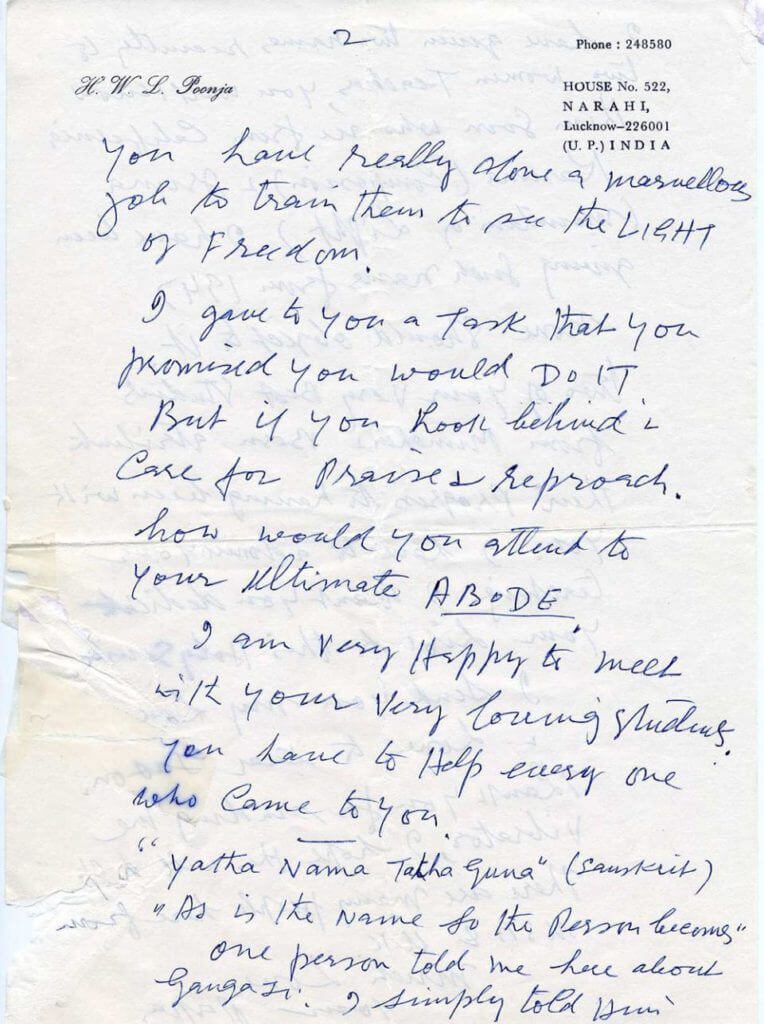 2
Phone : 248580
H. W. L. Poonja
HOUSE No. 522,
NARAHI,
Lucknow—226001
(U. P.) INDIA
You have really done a marvellous
job to train them to see the LIGHT
of Freedom.
I gave to you a Task that you
promised you would DO IT
But if you look behind &
Care for Praise & reproach.
how would you attend to
your Ultimate ABODE.
I am very Happy to meet
with your very loving students.
you have to Help every one
who Came to you.
"Yatha Nama Tatha Guna" (Sanskrit)
"As is the Name so the Person becomes"
one person told me here about
Gangaji. I simply told him